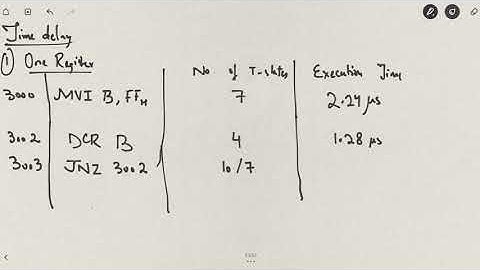 Time delay
① One Register
No of T-states
Execution Time
3000 MVI B, FFH 7 2.24 µs
3002 DCR B 4 1.28 µs
3003 JNZ 3002 10/7